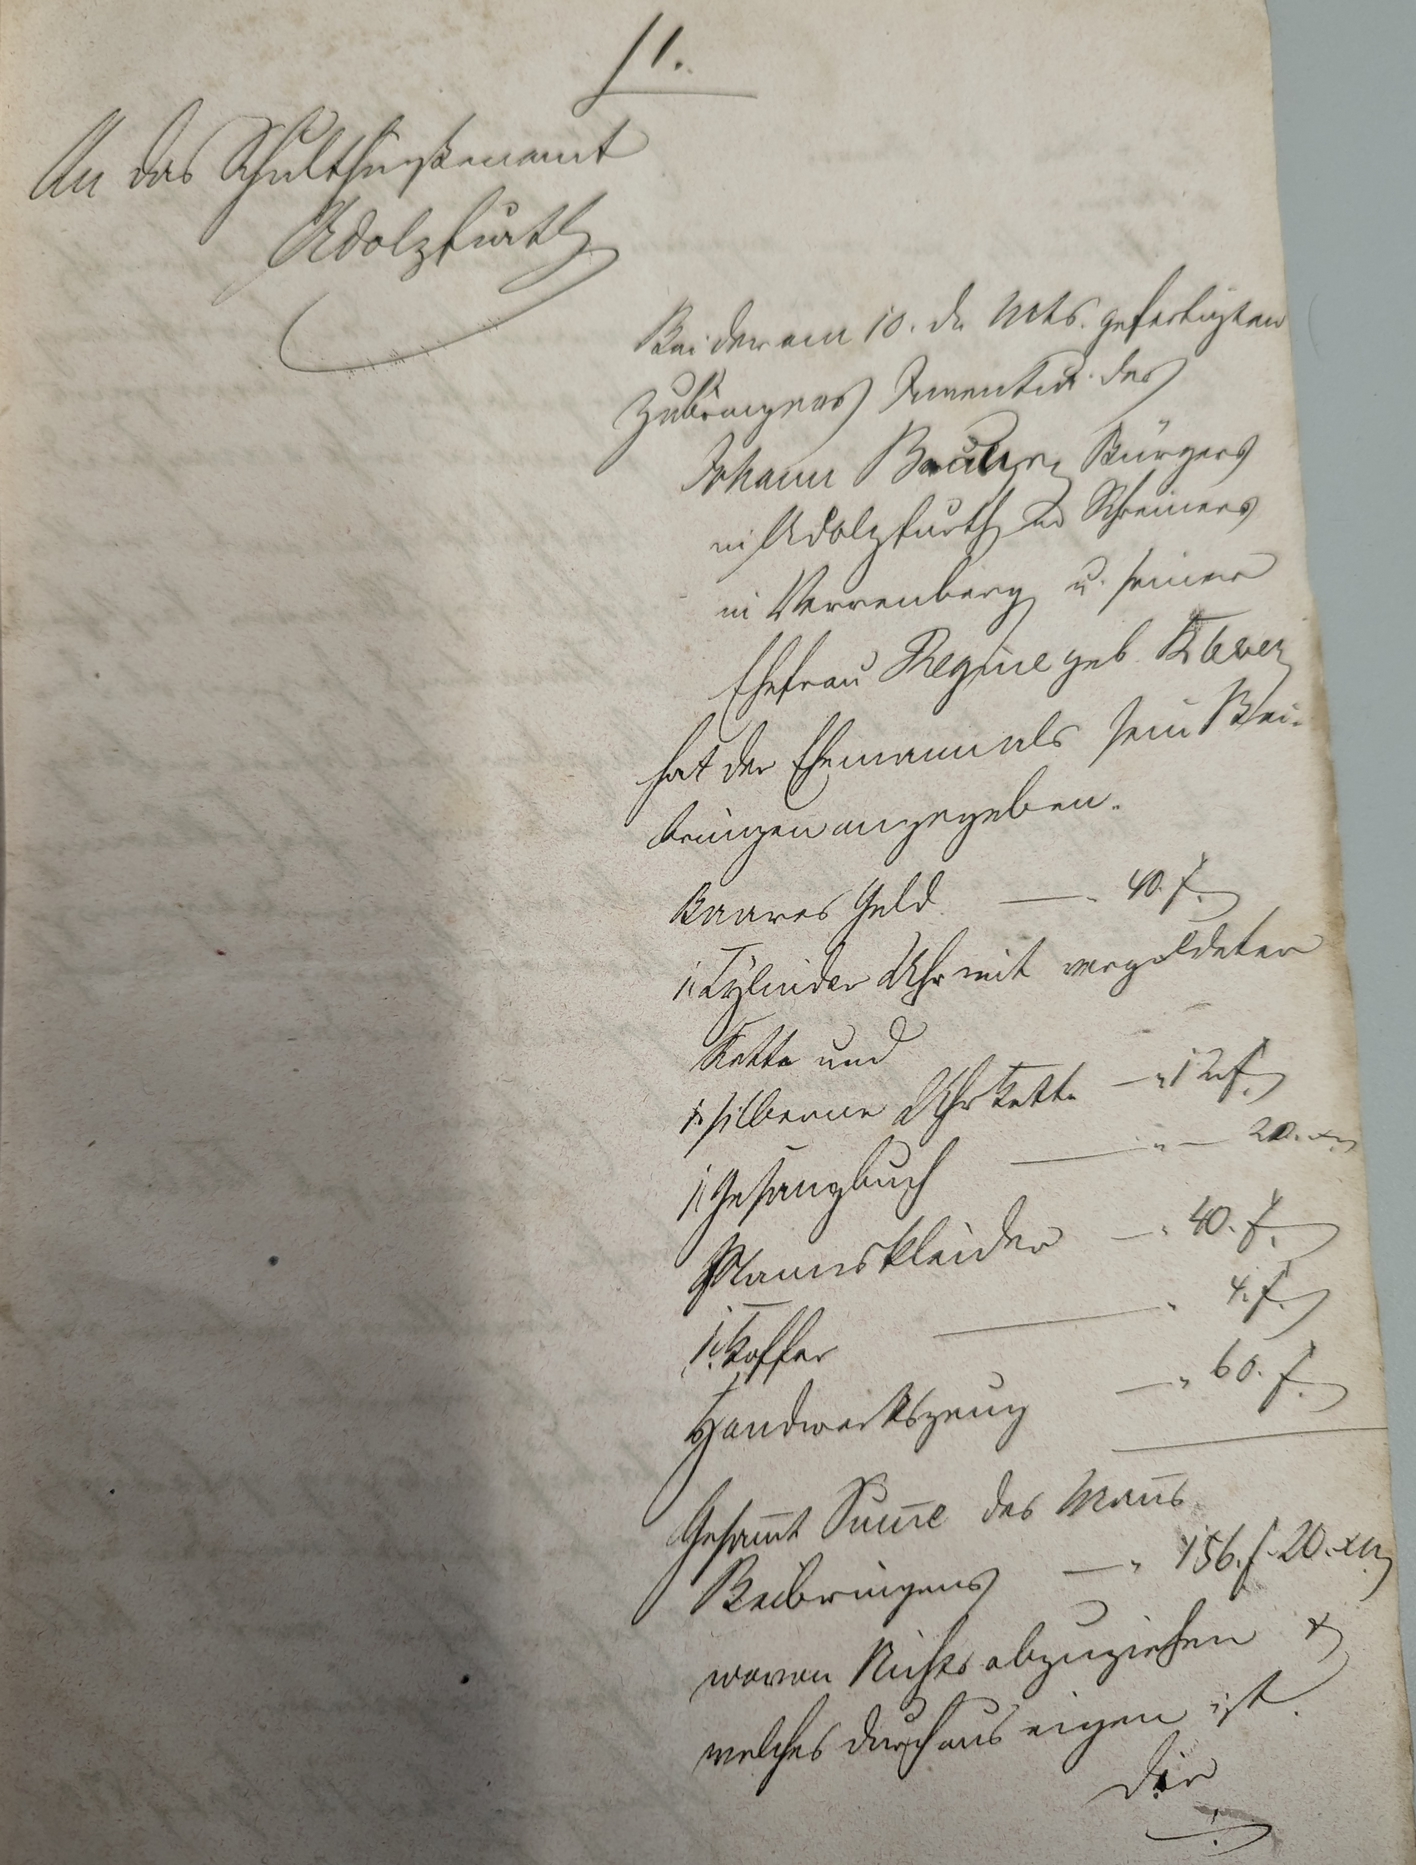 § 1.
An das Schultheißenamt
Adolzfurth
Bei der am 10. d. Mts. gefertigten
Zubringens Inventur des
Johann Bürgers
in Adolzfurth u Schreiners
in Verrenberg u. seiner
Ehefrau Regine geb.
hat der Ehemann als sein Bei-
bringen angegeben.
Baares Geld — " 40. f.
1. Cylinder Uhr mit vergoldeter
Kette und
1. silberne Uhrkette — " 12 f.
1. Gesangbuch — " — 20. xr
Mannskleider — " 40. f.
1. Koffer — " 4. f.
Handwerkszeug — " 60. f.
Gesam̅t Sum̅e des Man̅s
Beibringens — " 156. f. 20. xr
wovon Nichts abzuziehen &
welches durchaus eigen ist.
Die